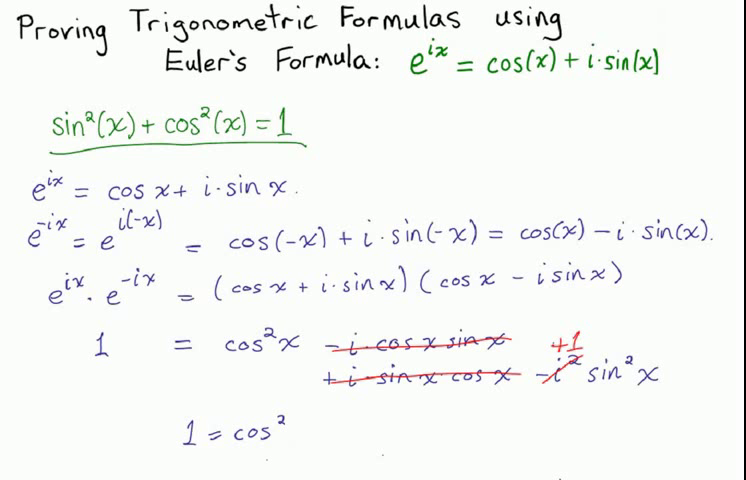 Proving Trigonometric Formulas using
Euler's Formula: e^{ix} = cos(x) + i·sin(x)
sin²(x) + cos²(x) = 1
e^{ix} = cos x + i·sin x.
e^{-ix} = e^{i(-x)} = cos(-x) + i·sin(-x) = cos(x) - i·sin(x).
e^{ix} · e^{-ix} = (cos x + i·sin x)(cos x - i sin x)
1 = cos²x - i·cos x sin x +1
+ i·sin x cos x - i² sin²x
1 = cos²